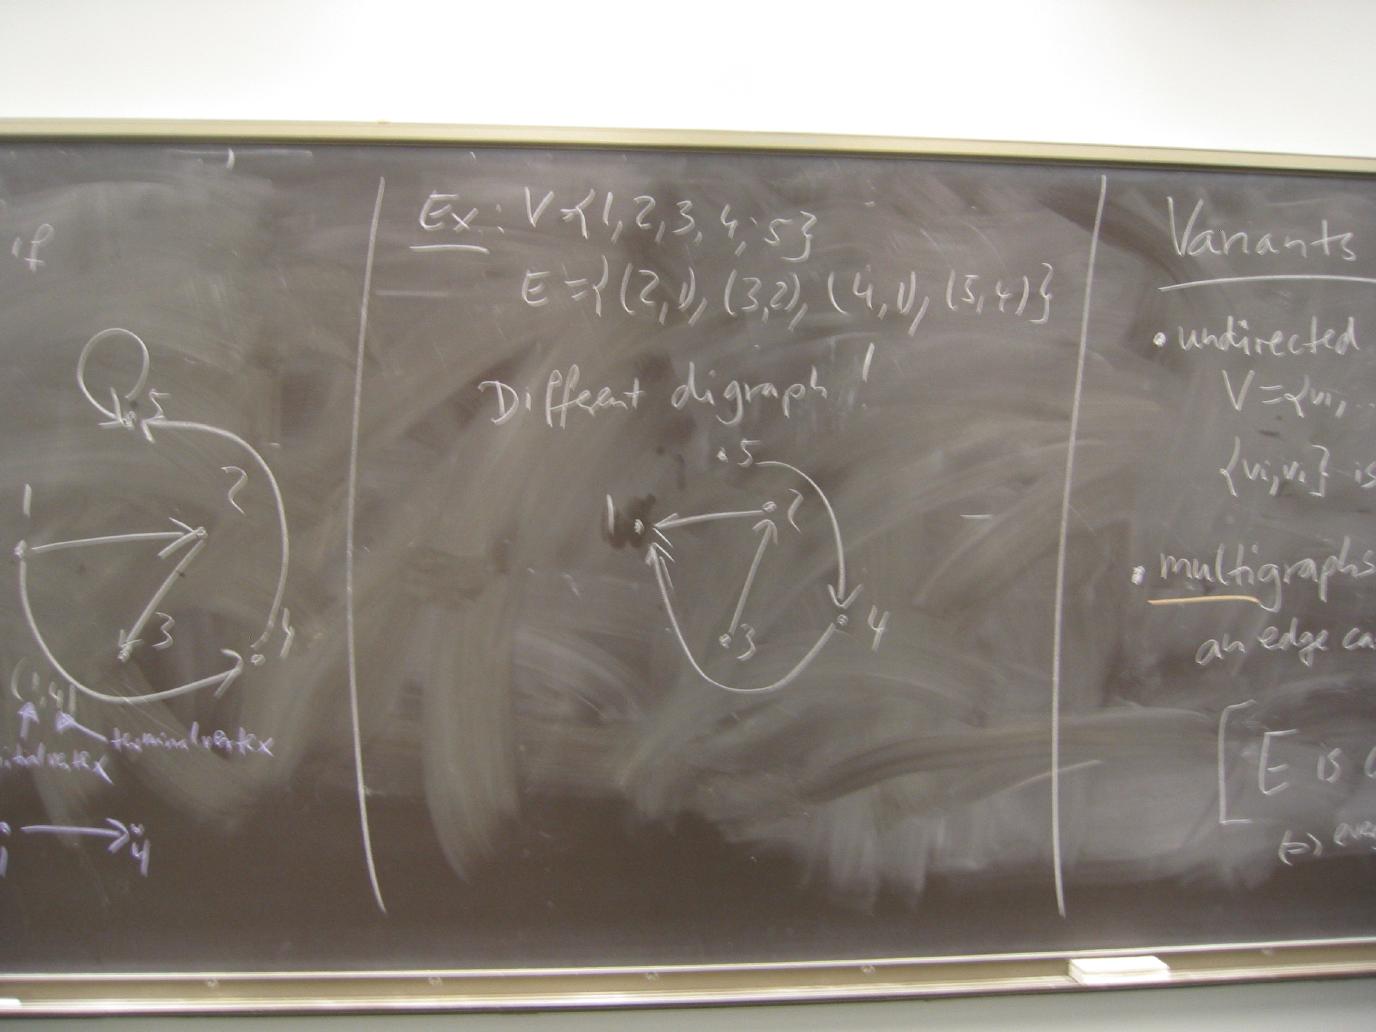 if
5
2
1
3
4
(1,4)
terminal vertex
itial vertex
4
Ex.: V={1,2,3,4,5}
E={(2,1), (3,2), (4,1), (5,4)}
Different digraph!
5
1
2
3
4
Variants
• undirected
V={vi,..
{vi,vi} is
• multigraphs
an edge ca
[E is
(=) eve